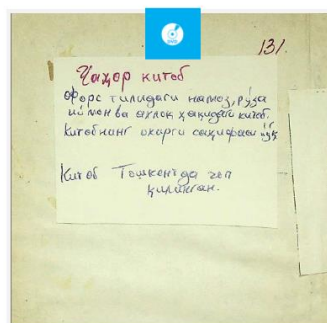 DVD
131.
Чаҳор китоб
Форс тилидаги намоз, рўза
иймон ва ахлоқ ҳақидаги китоб.
Китобнинг охирги саҳифаси йўқ
Китоб Тошкентда чоп
қилинган.